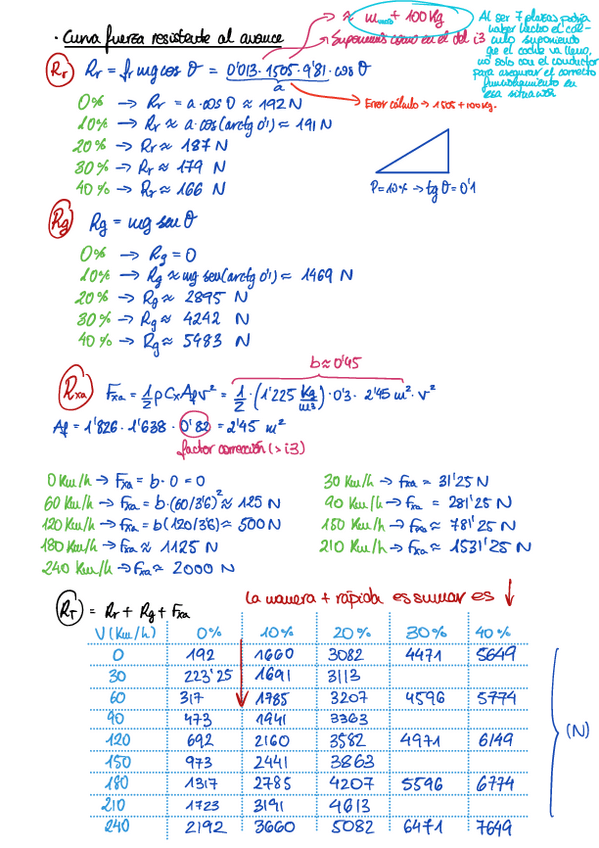 ≈ m + 100 Kg
· Curva fuerza resistente al avance
→ Suponemos como en el del i3
Al ser 7 plazas podría
haber hecho el cál-
culo suponiendo
que el coche va lleno,
no solo con el conductor
para asegurar el correcto
funcionamiento en
esa situación
Rr Rr = fr mg cos θ = 0'013 · 1505 · 9'81 · cos θ
a
→ Error cálculo → 1505 + 100 kg.
0% → Rr = a · cos 0 ≈ 192 N
10% → Rr ≈ a · cos(arctg 0'1) ≈ 191 N
20% → Rr ≈ 187 N
30% → Rr ≈ 179 N
40% → Rr ≈ 166 N
P=10% → tg θ = 0'1
Rg Rg = mg sen θ
0% → Rg = 0
10% → Rg ≈ mg sen(arctg 0'1) ≈ 1469 N
20% → Rg ≈ 2895 N
30% → Rg ≈ 4242 N
40% → Rg ≈ 5483 N
b ≈ 0'45
Rxa Fxa = 1/2 ρ Cx Af v² = 1/2 · (1'225 Kg/m3) · 0'3 · 2'45 m² · v²
Af = 1'826 · 1'638 · 0'82 = 2'45 m²
factor corrección (> i3)
0 Km/h → Fxa = b · 0 = 0
30 Km/h → Fxa ≈ 31'25 N
60 Km/h → Fxa = b · (60/3'6)² ≈ 125 N
90 Km/h → Fxa = 281'25 N
120 Km/h → Fxa = b (120/3'6) ≈ 500 N
150 Km/h → Fxa ≈ 781'25 N
180 Km/h → Fxa ≈ 1125 N
210 Km/h → Fxa ≈ 1531'25 N
240 Km/h → Fxa ≈ 2000 N
RT = Rr + Rg + Fxa
La manera + rápida es sumar es ↓
V (Km/h) 0% 10% 20% 30% 40%
0 192 1660 3082 4471 5649
30 223'25 1691 3113
60 317 1785 3207 4596 5774
90 473 1941 3363
120 692 2160 3582 4971 6149
(N)
150 973 2441 3863
180 1317 2785 4207 5596 6774
210 1723 3191 4613
240 2192 3660 5082 6471 7649